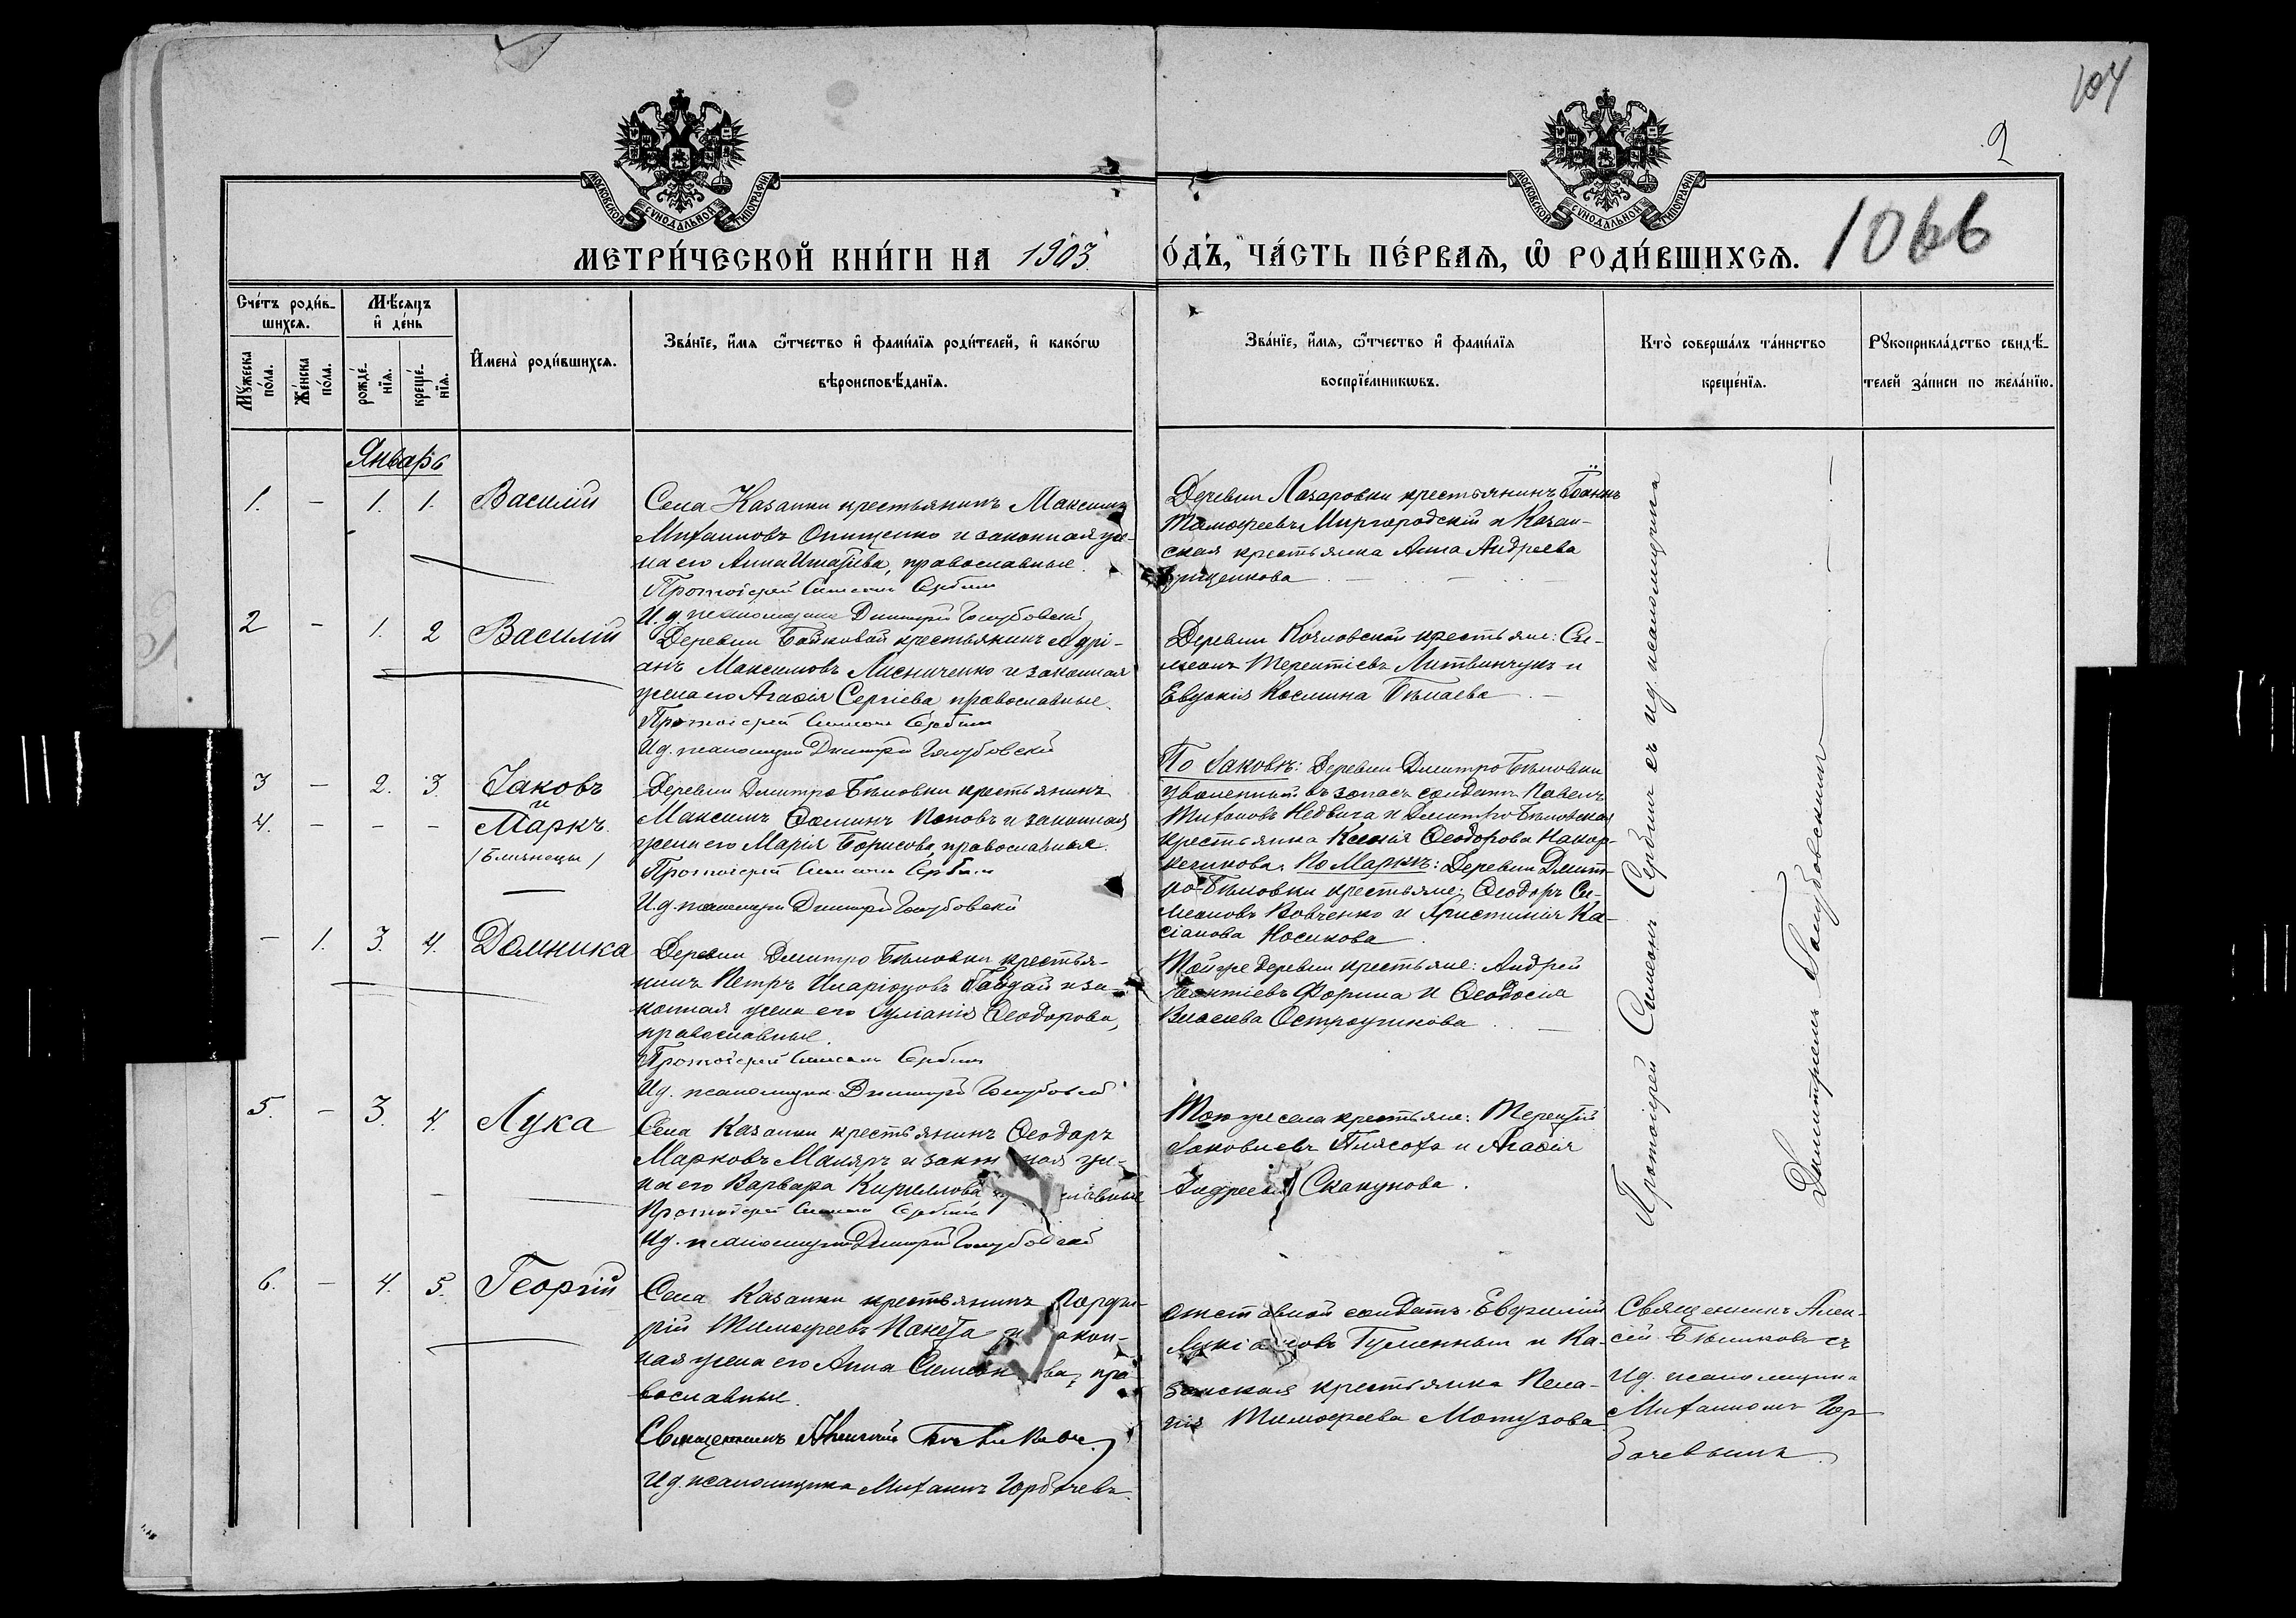 104
2
1066
МОСКОВСКОЙ СѴНОДАЛЬНОЙ ТИПОГРАФІИ
МОСКОВСКОЙ СѴНОДАЛЬНОЙ ТИПОГРАФІИ
МЕТРИ́ЧЕСКОЙ КНИ́ГИ НА 1903
О́ДЪ, ЧА́СТЬ ПЕ́РВАѦ, Ѿ РОДИ́ВШИХСѦ.
Сче́тъ роди́в-
шихсѧ.
Мꙋжеска по́ла.
Же́нска по́ла.
Мѣ́сяцъ и де́нь
рожде́-нїѧ.
креще́-нїѧ.
И҆мена̀ роди́вшихсѧ.
Зва́нїе, и҆́мя ѻ҆́тчество и҆ фами́лїѧ роди́телей, и҆ како́гѡ
вѣроисповѣ́данїѧ.
Зва́нїе, и҆́мя, ѻ҆́тчество и҆ фами́лїѧ
воспрїе́мникѡвъ.
Кто̀ соверша́лъ та́инство
креще́нїѧ.
Рꙋкоприкла́дство свидѣ́-
телей за́писи по жела́нїю.
Январь
1. - 1. 1. Василій
Села Казанки крестьянинъ Максимъ
Михаиловъ Онищенко и законная же-
на его Анна Игнатіева, православные.
Протоіерей Симеонъ Сербинъ
И.д. псаломщика Димитрій Голубовскій
Деревни Лазаровки крестьянинъ Іоаннъ
Тимофеевъ Миргородскій и Казан-
ская крестьянка Анна Андреева
2 - 1. 2 Василій
Деревни Байковой крестьянинъ Адрі-
анъ Максимовъ Лисниченко и законная
жена его Агафія Сергіева православные.
Протоіерей Симеонъ Сербинъ
И.д. псаломщика Димитрій Голубовскій
Деревни Козловской крестьяне: Си-
меонъ Терентіевъ Литвинчукъ и
Евдокія Космина
3 - 2. 3. Іаковъ
и
4. - - - Маркъ.
/близнецы/
Деревни Дмитро-Бѣловки крестьянинъ
Максимъ Ѳоминъ Поповъ и законная
жена его Марія Борисова, православные.
Протоіерей Симеонъ Сербинъ
И.д. псаломщика Димитрій Голубовскій
По Іаковѣ: Деревни Дмитро Бѣловки
уволенный въ запасъ солдатъ Павелъ
и Дмитро-Бѣловская
крестьянка Ксенія Ѳеодорова Накор-
По Маркѣ: Деревни Дмит-
ро-Бѣловки крестьяне: Ѳеодоръ Си-
меоновъ Вовченко и Христинія Ка-
сіанова Носикова
- 1. 3. 4. Домника
Деревни Дмитро Бѣловки крестья-
нинъ Петръ Иларіоновъ Гайдай и за-
конная жена его Іуліанія Ѳеодорова,
православные.
Протоіерей Симеонъ Сербинъ
И.д. псаломщика Димитрій Голубовскій
Той же деревни крестьяне: Андрей
Леонтіевъ Форина и Ѳеодосія
Власіева Остроушкова
5. - 3. 4. Лука
Села Казанки крестьянинъ Ѳеодоръ
Марковъ Маляръ и законная же-
на его Варвара Кириллова
Протоіерей Симеонъ Сербинъ
И.д. псаломщика Димитрій Голубовскій
Того же села крестьяне: Терентій
Іаковлевъ и Агафія
Андреева Скакунова.
6. - 4. 5. Георгій
Села Казанки крестьянинъ Порфи-
рій Тимофеевъ и закон-
ная жена его Анна Симеонова, пра-
вославные.
Священникъ Алексій Бѣликовъ
И.д. псаломщика Михаилъ Горбачевъ.
отставной солдатъ Евфимій
Лукіановъ Гуменный и Ка-
занская крестьянка Пела-
гія Тимофеева Мотузова
Протоіерей Симеонъ Сербинъ съ и.д. псаломщика
Димитріемъ Голубовскимъ
Священникъ Алек-
сій Бѣликовъ съ
и.д. псаломщика
Михаиломъ Гор-
бачевымъ.